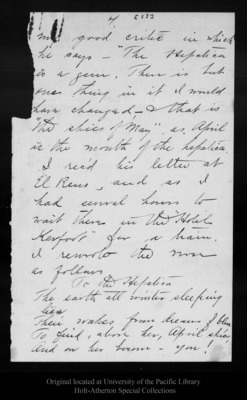 of 5132
my good critic in which
he says — "The Hepatica
is a gem. There is but
one thing in it I would
have changed — & that is
"the skies of May", as April
is the month of the hepatica.
I rec'd his letter at
El Reno, and as I
had several hours to
wait there in the Hotel
Kerfoot for a train.
I rewrote the verse
as follows
To the Hepatica
The earth all winter sleeping
lies
Then wakes from dreams of blue
To find, above her, April skies
And on her bosom — you!
Original located at University of the Pacific Library
Holt-Atherton Special Collections